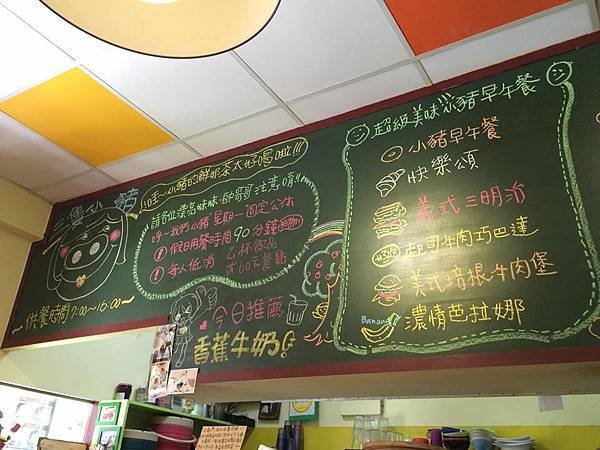 三隻小豬
哇~小豬的鮮奶茶太好喝啦!!!
請各位漂亮妹妹、帥哥哥注意唷!!
呼~我們小豬星期一固定公休
! 假日用餐時間90分鐘
! 每人低消 乙杯飲品
或60元餐點
~供餐時間7:00~16:00~
今日推薦
香蕉牛奶
超級美味小豬早午餐
小豬早午餐
快樂頌
義式三明治
起司牛肉巧巴達
美式培根牛肉堡
Banana
濃情芭拉娜